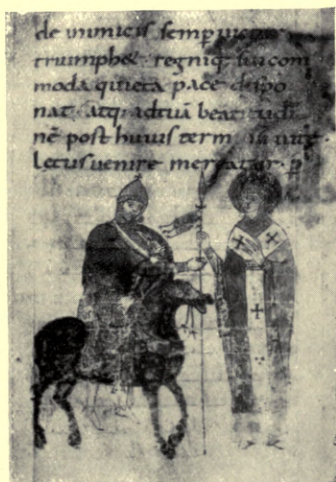 de inimicis semp
triumphet · regniq; sui com
moda quieta pace dispo
nat · atq; ad tuā beatitudi
nē post huius term
letus venire mereatur · p